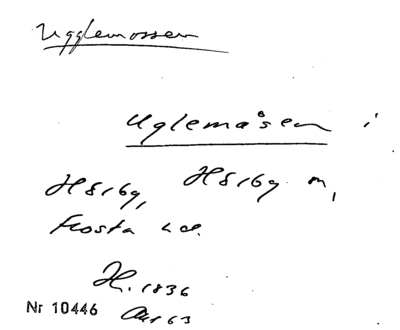 Ugglemossen
Uglemåsen i
H 8 169, H 8 169 m,
Frosta hd.
H. 1836
Nr 10446